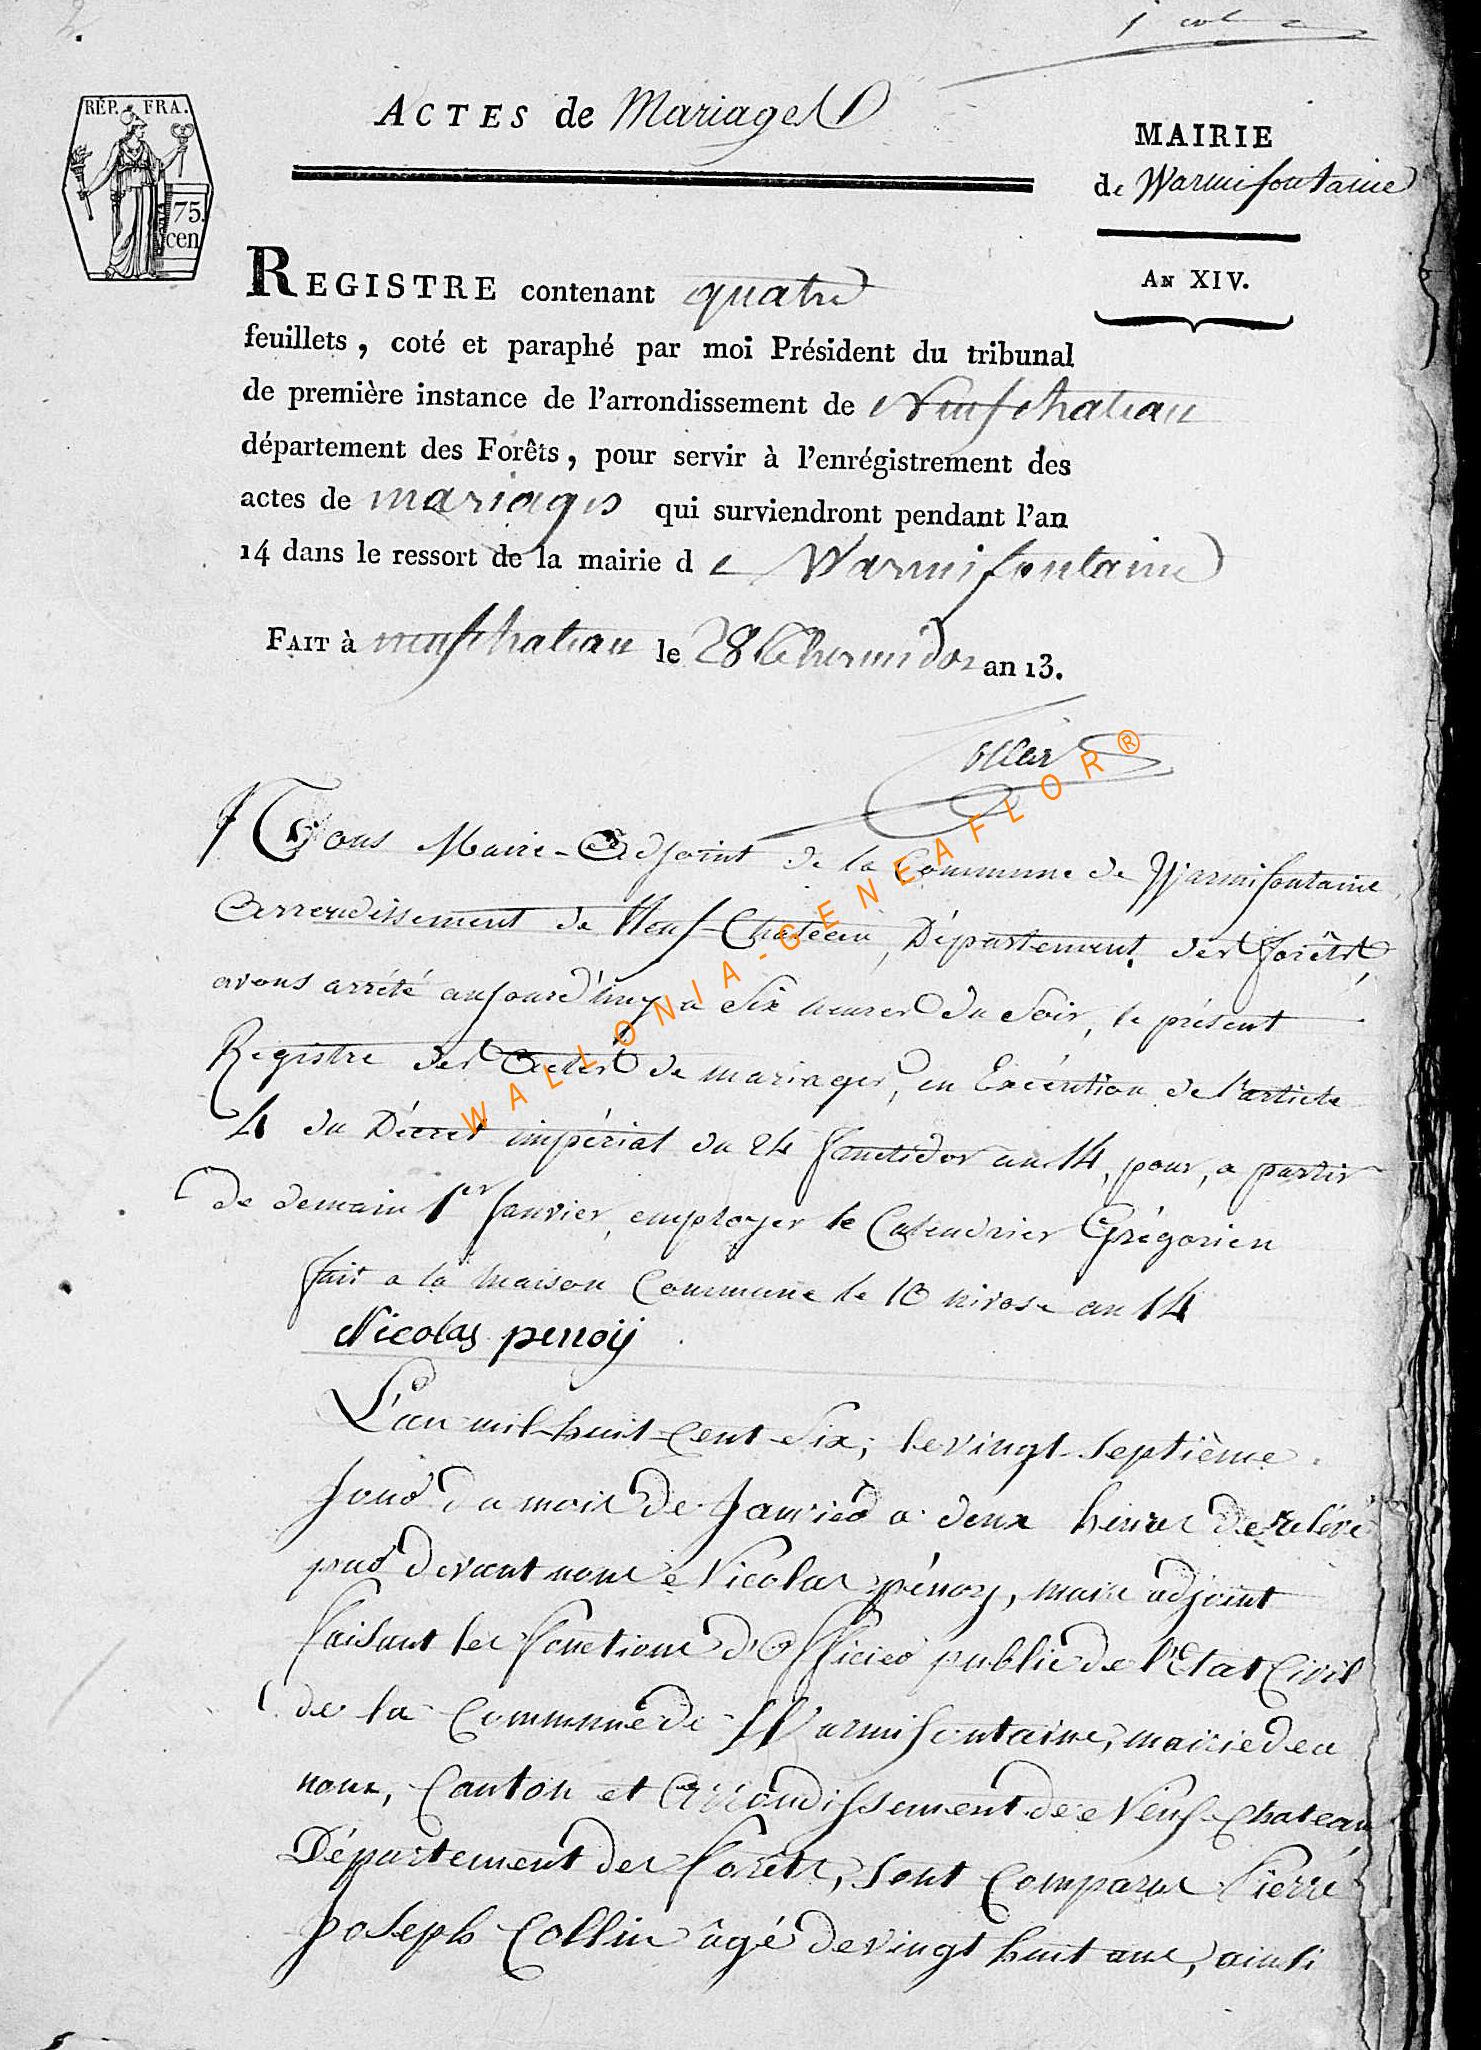 ACTES de Mariages
MAIRIE
de Warmifontaine
AN XIV.
RÉP. FRA.
75.
cen
REGISTRE contenant quatre
feuillets, coté et paraphé par moi Président du tribunal
de première instance de l'arrondissement de Neufchateau
département des Forêts, pour servir à l'enrégistrement des
actes de mariages qui surviendront pendant l'an
14 dans le ressort de la mairie de Warmifontaine
FAIT à neufchateau le 28 thermidor an 13.
Nous Maire-Adjoint de la Commune de Warmifontaine,
Arrondissement de Neuf-Chateau, Département des forêts,
avons arrété aujourd'huy a Six heures du Soir, le présent
Registre des Actes de mariages, en Exécution de l'article
4 du Décret impérial du 24 fructidor an 14, pour, a partir
de demain 1er Janvier, employer le Calendrier Grégorien
fait a la maison Commune le 10 nivose an 14
Nicolas penoij
L'an mil-huit-Cent-Six, le vingt-septième
Jour du mois de Janvier a deux heures de relévé
par devant nous Nicolas pénoy, maire adjoint
faisant les fonctions d'Officier public de l'Etat Civil
de la Commune de Warmifontaine, mairie de ce
nom, Canton et Arrondissement de Neuf-Chateau
Département des forêts, sont Comparus Pierre
Joseph Collin âgé de vingt huit ans, ainsi
WALLONIA-GENEAFLOR®